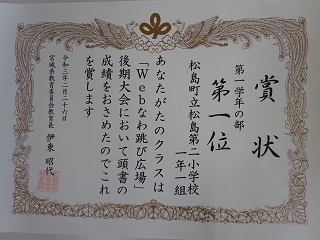 賞状
第一学年の部
第一位
松島町立松島第二小学校
一年一組
あなたがたのクラスは
「Webなわ跳び広場」
後期大会において頭書の
成績をおさめたのでこれ
を賞します
令和三年一月二十六日
宮城県教育委員会教育長 伊東昭代